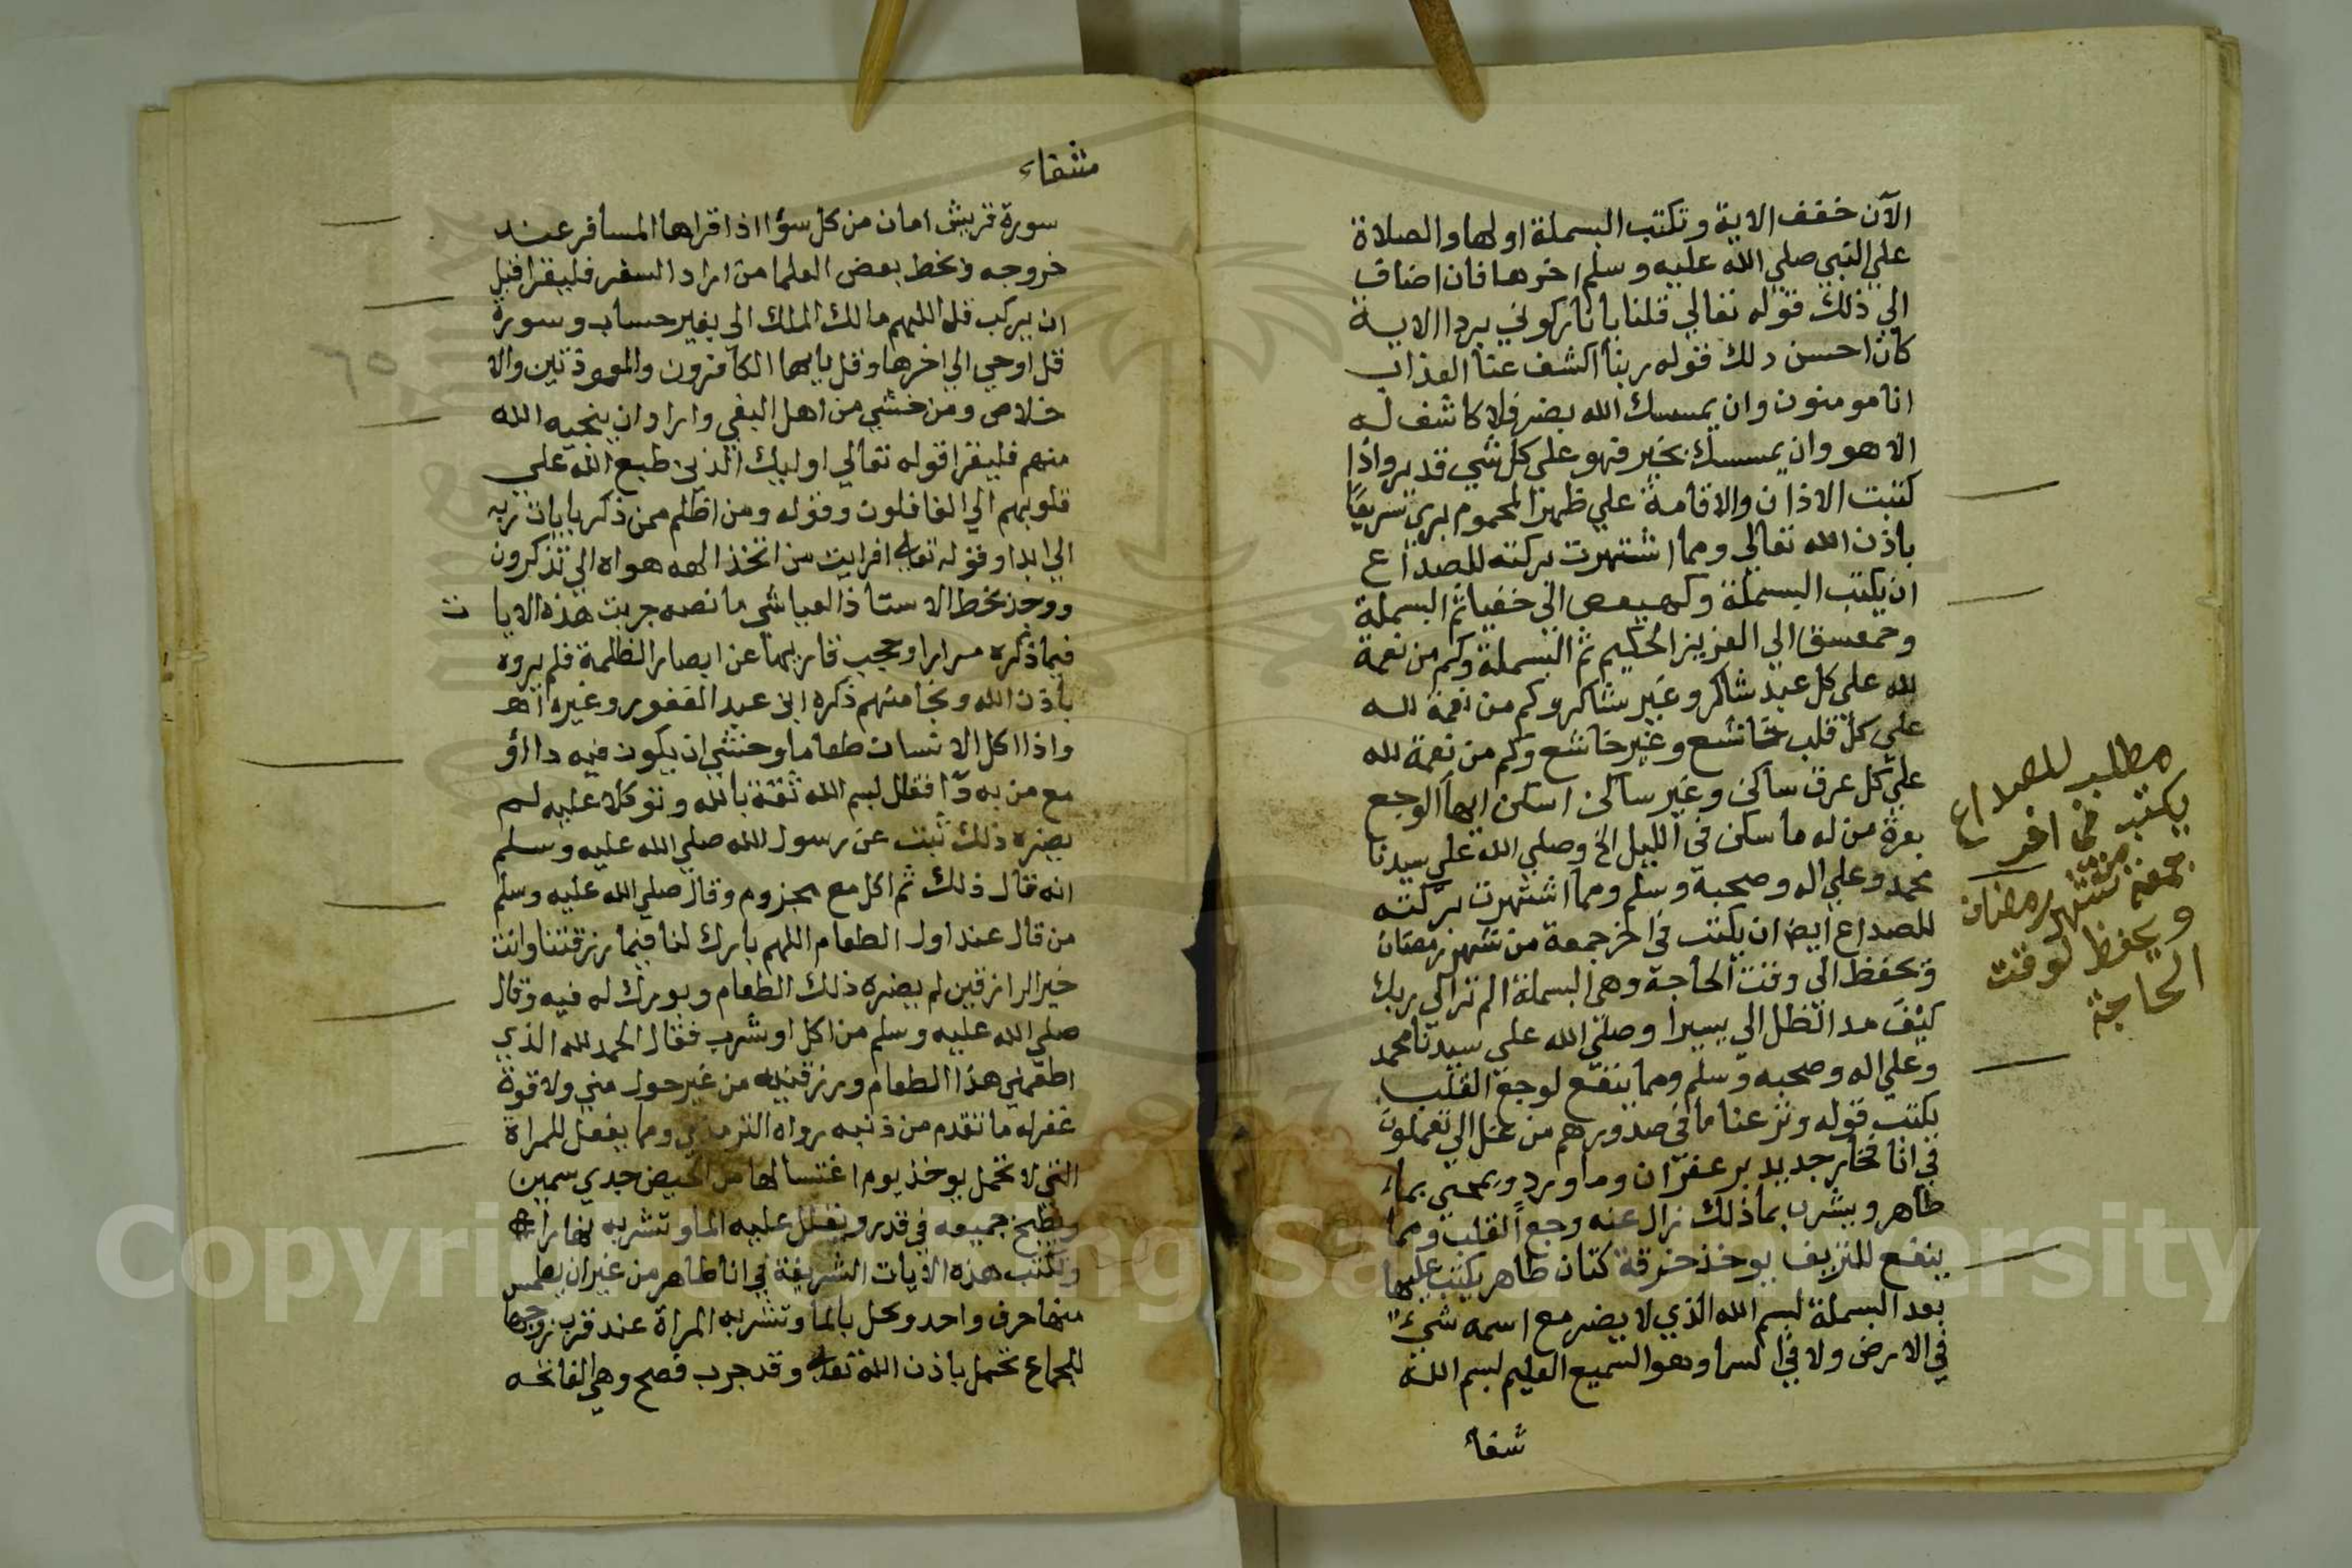 الآن خفف الاية وتكتب البسملة اولها والصلاة
علي النبي صلي الله عليه وسلم اخرها فان اضاف
الي ذلك قوله تعالي قلنا يا نار كوني بردا الاية
كان احسن ذلك قوله ربنا اكشف عنا العذاب
انا مومنون وان يمسسك الله بضر فلا كاشف له
الا هو وان يمسسك بخير فهو علي كل شي قدير واذا
كتبت الاذان والاقامة علي ظهر المحموم بري سريعا
باذن الله تعالي ومما اشتهرت بركته للصداع
ان يكتب البسملة وكهيعص الي خفيا ثم البسملة
وحمعسق الي العزيز الحكيم ثم البسملة وكم من نعمة
لله علي كل عبد شاكر وغير شاكر وكم من نعمة لله
علي كل قلب خاشع وغير خاشع وكم من نعمة لله
علي كل عرق ساكن وغير ساكن اسكن ايها الوجع
بعزة من له ما سكن في الليل الخ وصلي الله علي سيدنا
محمد وعلي اله وصحبه وسلم ومما اشتهرت بركته
للصداع ايضا ان يكتب في اخر جمعة من شهر رمضان
وتحفظ الي وقت الحاجة وهي البسملة الم تر الي ربك
كيف مد الظل الي يسيرا وصلي الله علي سيدنا محمد
وعلي اله وصحبه وسلم ومما ينفع لوجع القلب
يكتب قوله ونزعنا ما في صدورهم من غل الي تعملون
في انا فخار جديد بزعفران وماورد ويمحي بماء
طاهر ويشرب بماذلك زال عنه وجع القلب ومما
ينفع للنزيف يوخذ خرقة كتان طاهر يكتب عليها
بعد البسملة لبسم الله الذي لا يضر مع اسمه شيء
في الارض ولا في السما وهو السميع العليم لبسم الله
شفا
مطلب للصداع
يكتب في اخر
جمعة من شهر رمضان
ويحفظ لوقت
الحاجة
شفاء
سورة قريش امان من كل سؤا اذا قراها المسافر عند
خروجه وبخط بعض العلما من اراد السفر فليقرا قبل
ان يركب قل اللهم مالك الملك الي بغير حساب وسورة
قل اوحي الي اخرها وقل يايها الكافرون والمعوذتين والا
خلاص ومن خشي من اهل البغي واراد ان ينجيه الله
منهم فليقرا قوله تعالي اوليك الذين طبع الله علي
قلوبهم الي الغافلون وقوله ومن اظلم ممن ذكر بايات ربه
الي ابدا وقوله تعالي افرايت من اتخذ الهه هواه الي تذكرون
ووجد بخط الاستاذ العياشي ما نصه جربت هذه الايا ت
فيما ذكره مرارا وحجب قاريها عن ابصار الظلمة فلم يروه
باذن الله ونجا منهم ذكره ابن عبد الغفور وغيره اهـ
واذا اكل الانسان طعاما وخشي ان يكون فيه داا او
مع من به دا فقال لبسم الله ثقة بالله وتوكلا عليه لم
يضره ذلك ثبت عن رسول الله صلي الله عليه وسلم
انه قال ذلك ثم اكل مع مجزوم وقال صلي الله عليه وسلم
من قال عند اول الطعام اللهم بارك لنا فيما رزقتنا وانت
خير الرازقين لم يضره ذلك الطعام وبورك له فيه وقال
صلي الله عليه وسلم من اكل او شرب فقال الحمد لله الذي
اطعمني هذا الطعام ورزقنيه من غير حول مني ولا قوة
غفر له ما تقدم من ذنبه رواه الترمذي ومما يفعل للمراة
التي لا تحمل يوخذ يوم اغتسالها من الحيض جدي سمين
ويطبخ جميعه في قدر ويغلل عليه الما وتشربه نهارا
وتكتب هذه الايات الشريفة في انا طاهر من غير ان يطمس
منها حرف واحد وتحل بالما وتشربه المراة عند قرب زوجها
للجماع تحمل باذن الله تعالي وقد جرب فصح وهي الفاتحه
٦٥
Copyright © King Saud University
1957